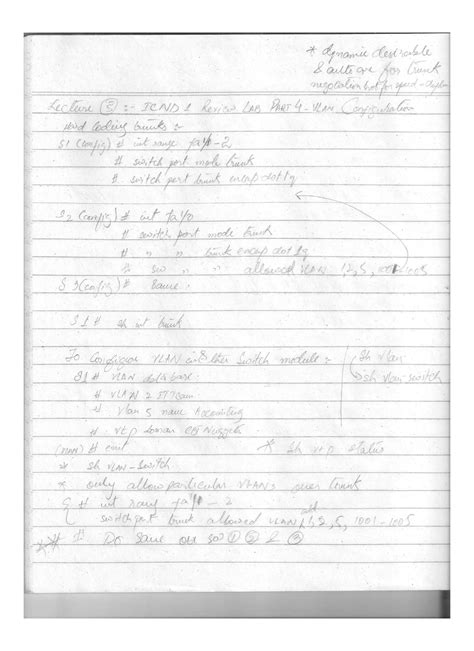 * dynamic desirable
& auto are for trunk
negotiation but for speed - duplex
Lecture ⑧ :- ICND 1 Review LAB PART 4 - VLAN Configuration
Hard Coding trunks :-
S1 (config) # int range fa1/0-2
# switch port mode trunk
# switch port trunk encap dot1q
S2 (config) # int fa1/0
# switch port mode trunk
# " " trunk encap dot1q
# sw " " allowed VLAN 1,2,5,1001-1005
S3 (config) # Same :
S1 # sh int trunk
To Configure VLAN in ether Switch module :-
S1 # VLAN database
# VLAN 2
# vlan 5 name Accounting
# vtp domain CBTNuggets
# exit
sh vlan
sh vlan-switch
* sh vtp status
* sh VLAN-Switch
* only allow particular VLANs over trunk
# int rang fa1/0 - 2
switchport trunk allowed VLAN 1,2,5,1001-1005
Do Same on SW ① ② & ③